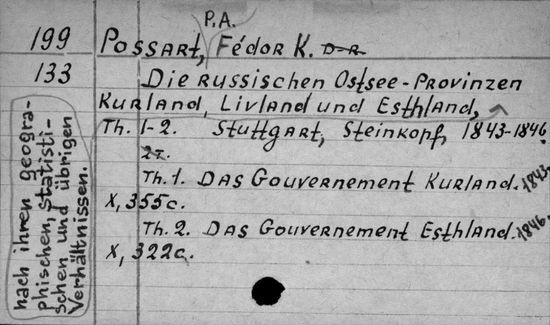 P.A.
199 Possart, Fédor K. D-r.
133 Die russischen Ostsee-Provinzen
Kurland, Livland und Esthland,
nach ihren geogra-
phischen, statisti-
schen und übrigen
Verhältnissen.
Th. 1-2. Stuttgart, Steinkopf, 1843-1846
2T.
Th. 1. Das Gouvernement Kurland. 1843.
X, 355c.
Th. 2. Das Gouvernement Esthland. 1846.
X, 322c.